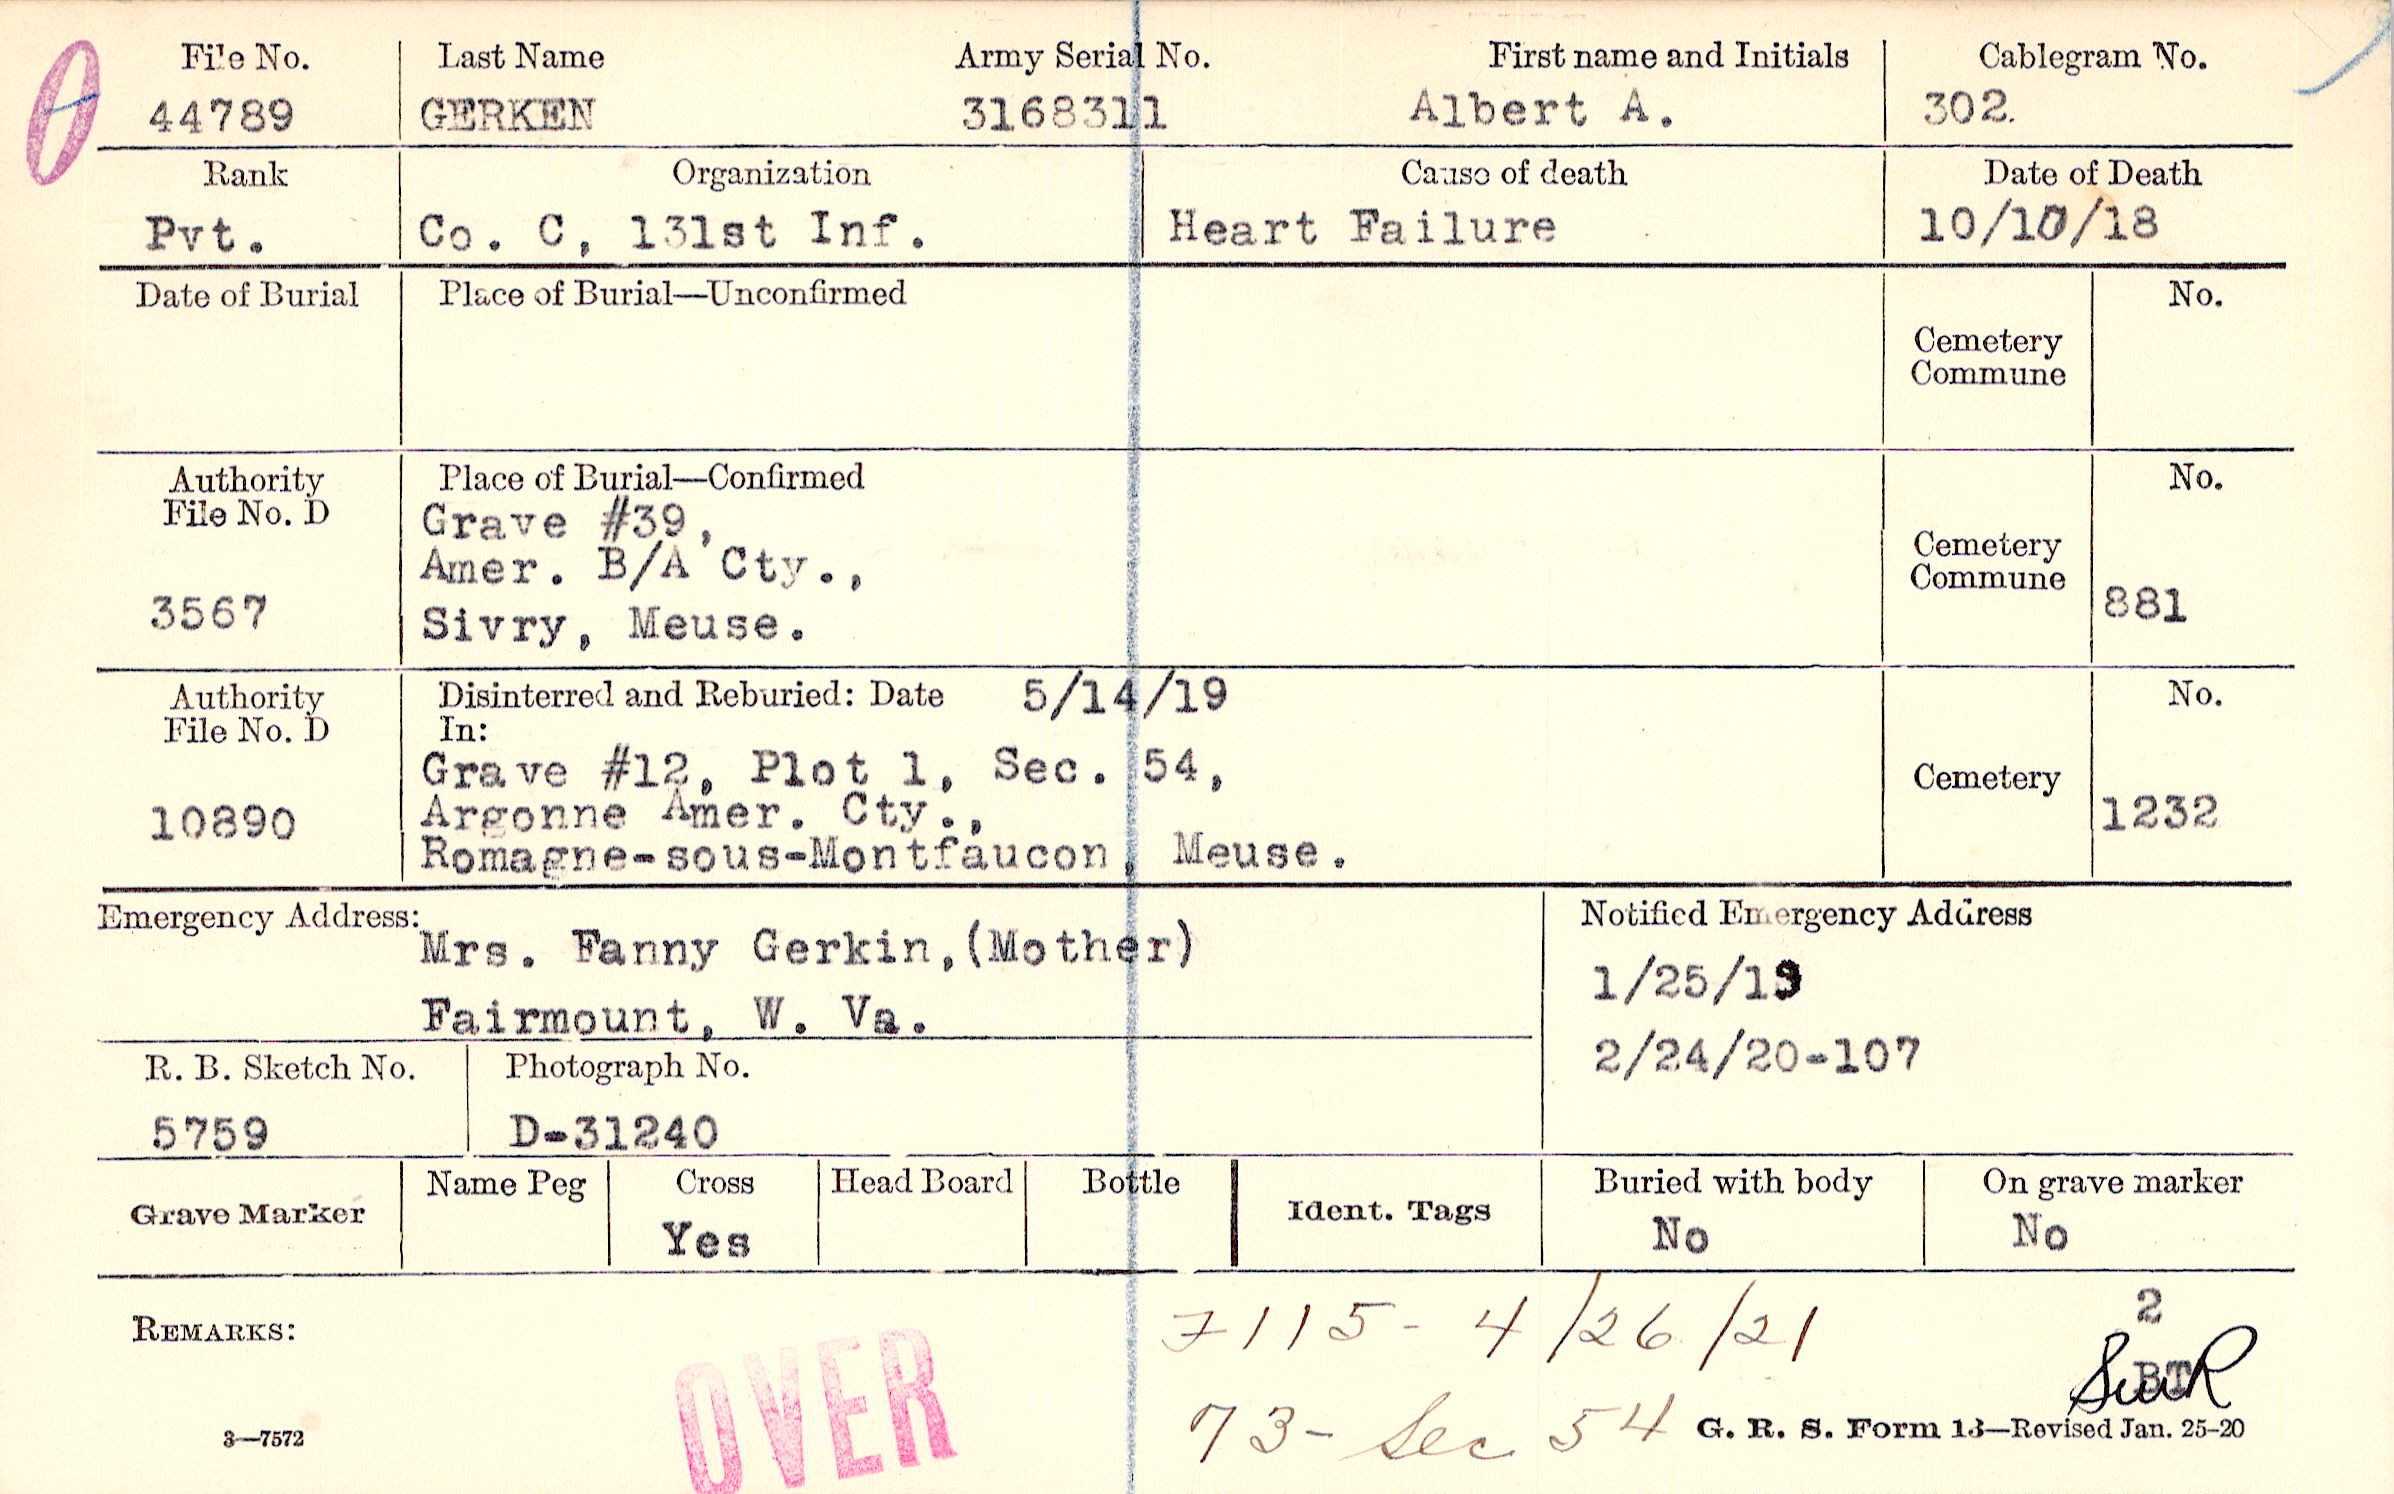 File No. Last Name Army Serial No. First name and Initials Cablegram No.
44789 GERKEN 3168311 Albert A. 302.
Rank Organization Cause of death Date of Death
Pvt. Co. C, 131st Inf. Heart Failure 10/10/18
Date of Burial Place of Burial—Unconfirmed No.
Cemetery
Commune
Authority Place of Burial—Confirmed No.
File No. D Grave #39,
Amer. B/A Cty., Cemetery
Commune
3567 Sivry, Meuse. 881
Authority Disinterred and Reburied: Date 5/14/19 No.
File No. D In:
Grave #12, Plot 1, Sec. 54, Cemetery
10890 Argonne Amer. Cty., 1232
Romagne-sous-Montfaucon, Meuse.
Emergency Address: Notified Emergency Address
Mrs. Fanny Gerkin,(Mother)
1/25/19
Fairmount, W. Va.
2/24/20-107
R. B. Sketch No. Photograph No.
5759 D-31240
Grave Marker Name Peg Cross Head Board Bottle Ident. Tags Buried with body On grave marker
Yes No No
REMARKS: 7115- 4/26/21 2
OVER BT
73- Sec 54
3—7572 G. R. S. Form 13—Revised Jan. 25-20